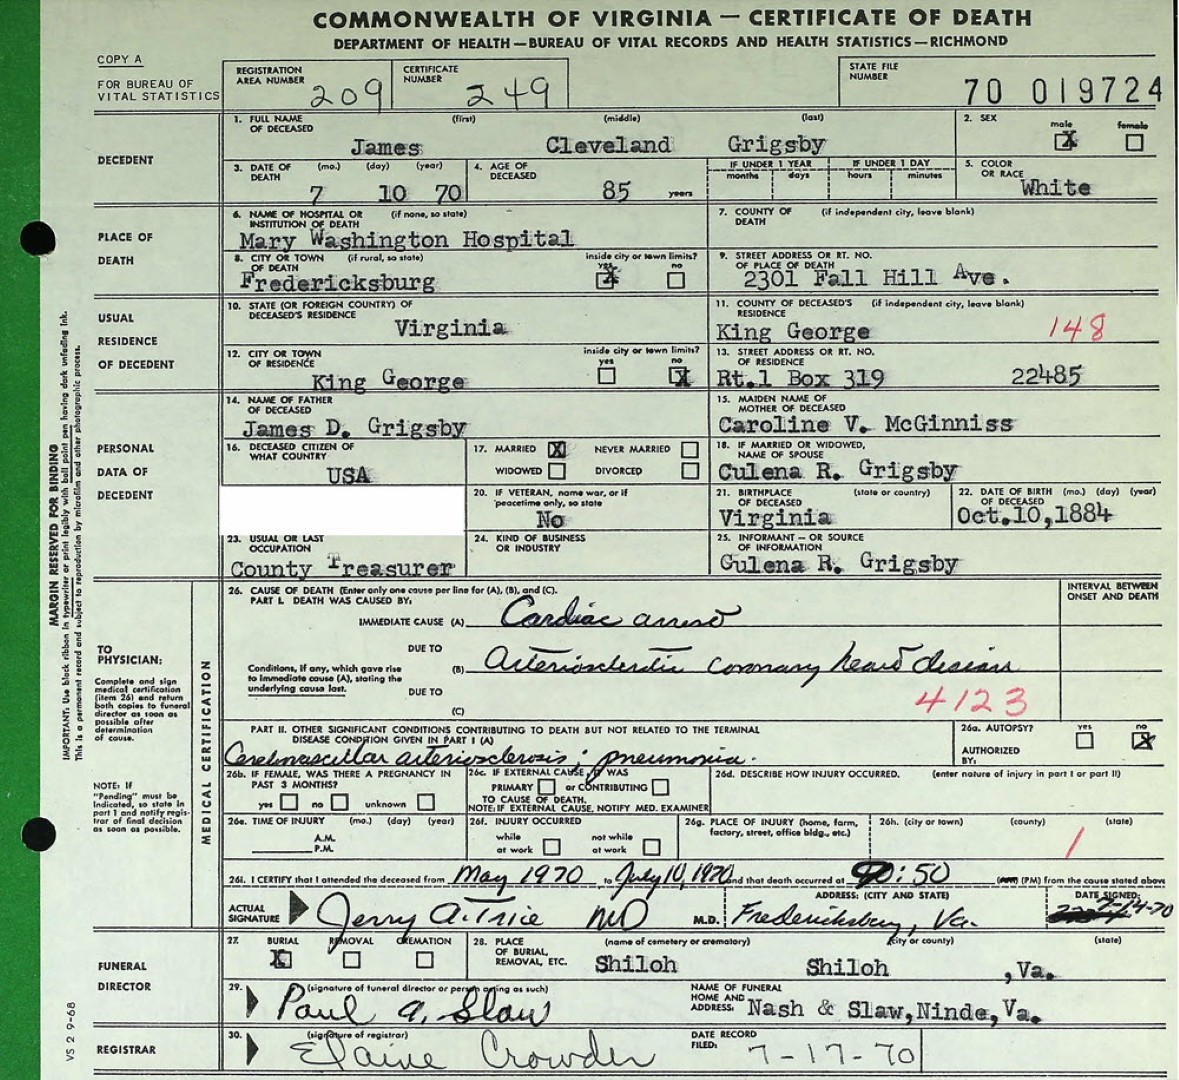 COMMONWEALTH OF VIRGINIA — CERTIFICATE OF DEATH
DEPARTMENT OF HEALTH—BUREAU OF VITAL RECORDS AND HEALTH STATISTICS—RICHMOND
COPY A
FOR BUREAU OF
VITAL STATISTICS
REGISTRATION
AREA NUMBER 209
CERTIFICATE
NUMBER 249
STATE FILE
NUMBER 70 019724
DECEDENT
1. FULL NAME (first) (middle) (last)
OF DECEASED
James Cleveland Grigsby
2. SEX male female
X
3. DATE OF (mo.) (day) (year)
DEATH 7 10 70
4. AGE OF
DECEASED 85 years
IF UNDER 1 YEAR IF UNDER 1 DAY
months days hours minutes
5. COLOR
OR RACE
White
PLACE OF
DEATH
6. NAME OF HOSPITAL OR (if none, so state)
INSTITUTION OF DEATH
Mary Washington Hospital
7. COUNTY OF (if independent city, leave blank)
DEATH
8. CITY OR TOWN (if rural, so state)
OF DEATH
Fredericksburg
inside city or town limits?
yes no
X
9. STREET ADDRESS OR RT. NO.
OF PLACE OF DEATH
2301 Fall Hill Ave.
USUAL
RESIDENCE
OF DECEDENT
10. STATE (OR FOREIGN COUNTRY) OF
DECEASED'S RESIDENCE
Virginia
11. COUNTY OF DECEASED'S (if independent city, leave blank)
RESIDENCE
King George 148
12. CITY OR TOWN
OF RESIDENCE
King George
inside city or town limits?
yes no
X
13. STREET ADDRESS OR RT. NO.
OF RESIDENCE
Rt.1 Box 319 22485
PERSONAL
DATA OF
DECEDENT
14. NAME OF FATHER
OF DECEASED
James D. Grigsby
15. MAIDEN NAME OF
MOTHER OF DECEASED
Caroline V. McGinniss
16. DECEASED CITIZEN OF
WHAT COUNTRY
USA
17. MARRIED X NEVER MARRIED
WIDOWED DIVORCED
18. IF MARRIED OR WIDOWED,
NAME OF SPOUSE
Culena R. Grigsby
20. IF VETERAN, name war, or if
peacetime only, so state
No
21. BIRTHPLACE (state or country)
OF DECEASED
Virginia
22. DATE OF BIRTH (mo.) (day) (year)
OF DECEASED
Oct.10,1884
23. USUAL OR LAST
OCCUPATION
County Treasurer
24. KIND OF BUSINESS
OR INDUSTRY
25. INFORMANT – OR SOURCE
OF INFORMATION
Culena R. Grigsby
MARGIN RESERVED FOR BINDING
IMPORTANT: Use black ribbon in typewriter or print legibly with ball point pen having dark unfading ink.
This is a permanent record and subject to reproduction by microfilm and other photographic process.
VS 2 9-68
TO
PHYSICIAN:
Complete and sign
medical certification
(item 26) and return
both copies to funeral
director as soon as
possible after
determination
of cause.
NOTE: If
"Pending" must be
indicated, so state in
part 1 and notify regis-
trar of final decision
as soon as possible.
MEDICAL CERTIFICATION
26. CAUSE OF DEATH (Enter only one cause per line for (A), (B), and (C).
PART I. DEATH WAS CAUSED BY:
INTERVAL BETWEEN
ONSET AND DEATH
IMMEDIATE CAUSE (A) Cardiac arrest
DUE TO
Conditions, if any, which gave rise
to immediate cause (A), stating the
underlying cause last.
(B) Arteriosclerotic coronary heart disease
DUE TO
(C)
4123
PART II. OTHER SIGNIFICANT CONDITIONS CONTRIBUTING TO DEATH BUT NOT RELATED TO THE TERMINAL
DISEASE CONDITION GIVEN IN PART I (A)
Cerebrovascular arteriosclerosis; pneumonia.
26a. AUTOPSY? yes no
X
AUTHORIZED
BY:
26b. IF FEMALE, WAS THERE A PREGNANCY IN
PAST 3 MONTHS?
yes no unknown
26c. IF EXTERNAL CAUSE, IT WAS
PRIMARY or CONTRIBUTING
TO CAUSE OF DEATH.
NOTE: IF EXTERNAL CAUSE, NOTIFY MED. EXAMINER
26d. DESCRIBE HOW INJURY OCCURRED. (enter nature of injury in part I or part II)
26e. TIME OF INJURY (mo.) (day) (year)
A.M.
P.M.
26f. INJURY OCCURRED
while not while
at work at work
26g. PLACE OF INJURY (home, farm,
factory, street, office bldg., etc.)
26h. (city or town) (county) (state)
1
26i. I CERTIFY that I attended the deceased from May 1970 to July 10, 1970 and that death occurred at :50 (PM) from the cause stated above
ACTUAL
SIGNATURE Jerry A. Trice MD M.D.
ADDRESS: (CITY AND STATE)
Fredericksburg, Va.
DATE SIGNED:
7-14-70
FUNERAL
DIRECTOR
27. BURIAL REMOVAL CREMATION
X
28. PLACE (name of cemetery or crematory) (city or county) (state)
OF BURIAL,
REMOVAL, ETC.
Shiloh Shiloh , Va.
29. (signature of funeral director or person acting as such)
Paul A. Slaw
NAME OF FUNERAL
HOME AND
ADDRESS: Nash & Slaw,Ninde,Va.
REGISTRAR
30. (signature of registrar)
Elaine Crowder
DATE RECORD
FILED: 7-17-70